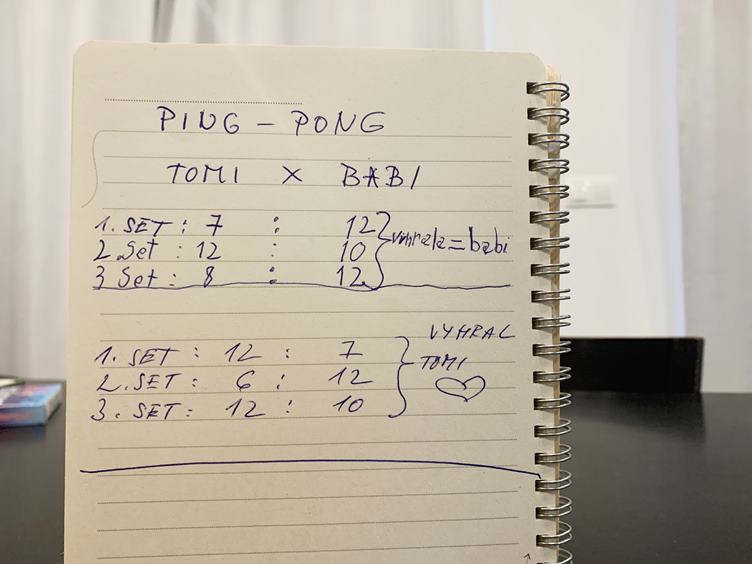 PING - PONG
TOMI X BABI
1. SET : 7 : 12
2. Set : 12 : 10
3 Set : 8 : 12
vihrala = babi
1. SET : 12 : 7
2. SET : 6 : 12
3. SET : 12 : 10
VYHRAL
TOMI